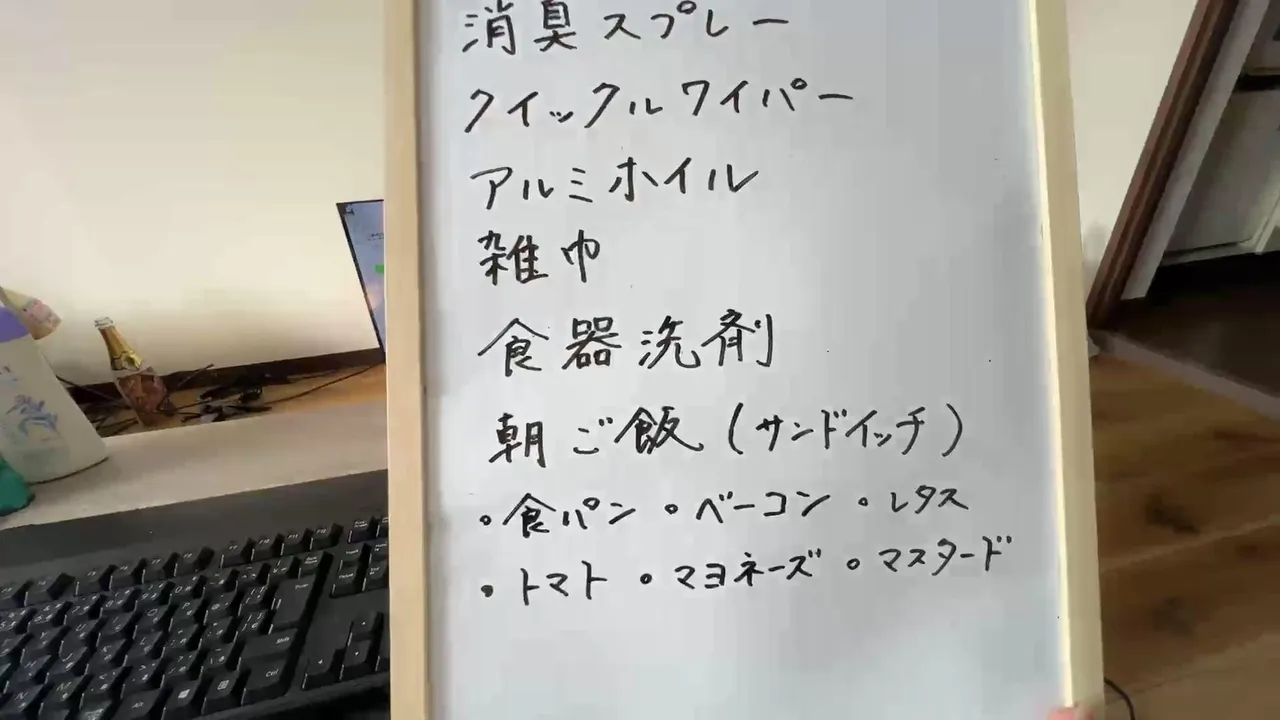 消臭スプレー
クイックルワイパー
アルミホイル
雑巾
食器洗剤
朝ご飯(サンドイッチ)
・食パン ・ベーコン ・レタス
・トマト ・マヨネーズ ・マスタード